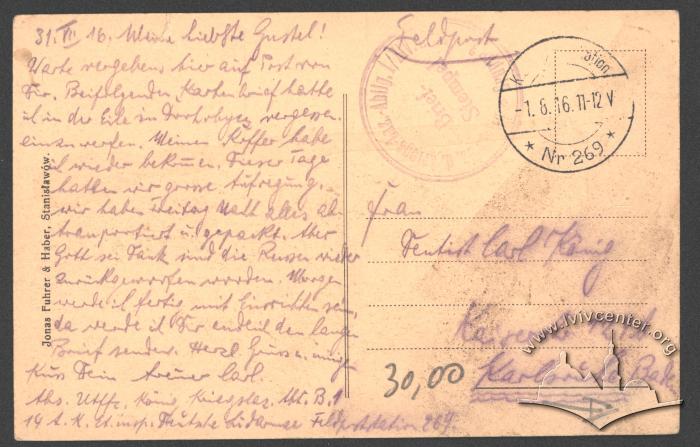 31. VII 16. Meine liebste Gustel!
Warte vergebens hier auf Post von
Dir. Beifolgenden Kartenbrief hatte
ich in der Eile zu Drohobycz vergessen
einzuwerfen. Meinen Koffer habe
ich wieder bekommen. Dieser Tage
hatten wir grosse Aufregung,
wir haben Freitag Nacht alles ab-
transportiert u. gepackt. Aber
Gott sei Dank sind die Russen wieder
zurückgeworfen worden. Morgen
werde ich fertig mit Einrichten sein,
da werde ich Dir endlich den langen
Brief senden. Herzl Gruss u. innigen
Kuss Dein treuer Carl.
Abs. Utffz. König Kriegslaz. Abt. B. 1
Deutsche Südarmee Feldpoststation 269.
Jonas Fuhrer & Haber, Stanisławów.
Feldpost
d. Kriegslaz. Abtlg.
Brief-
Stempel
K station
1. 8. 16. 11-12 V
* Nr 269 *
Frau
Dentist Carl König
Karlsruhe Baden
30,00
www.lvivcenter.org